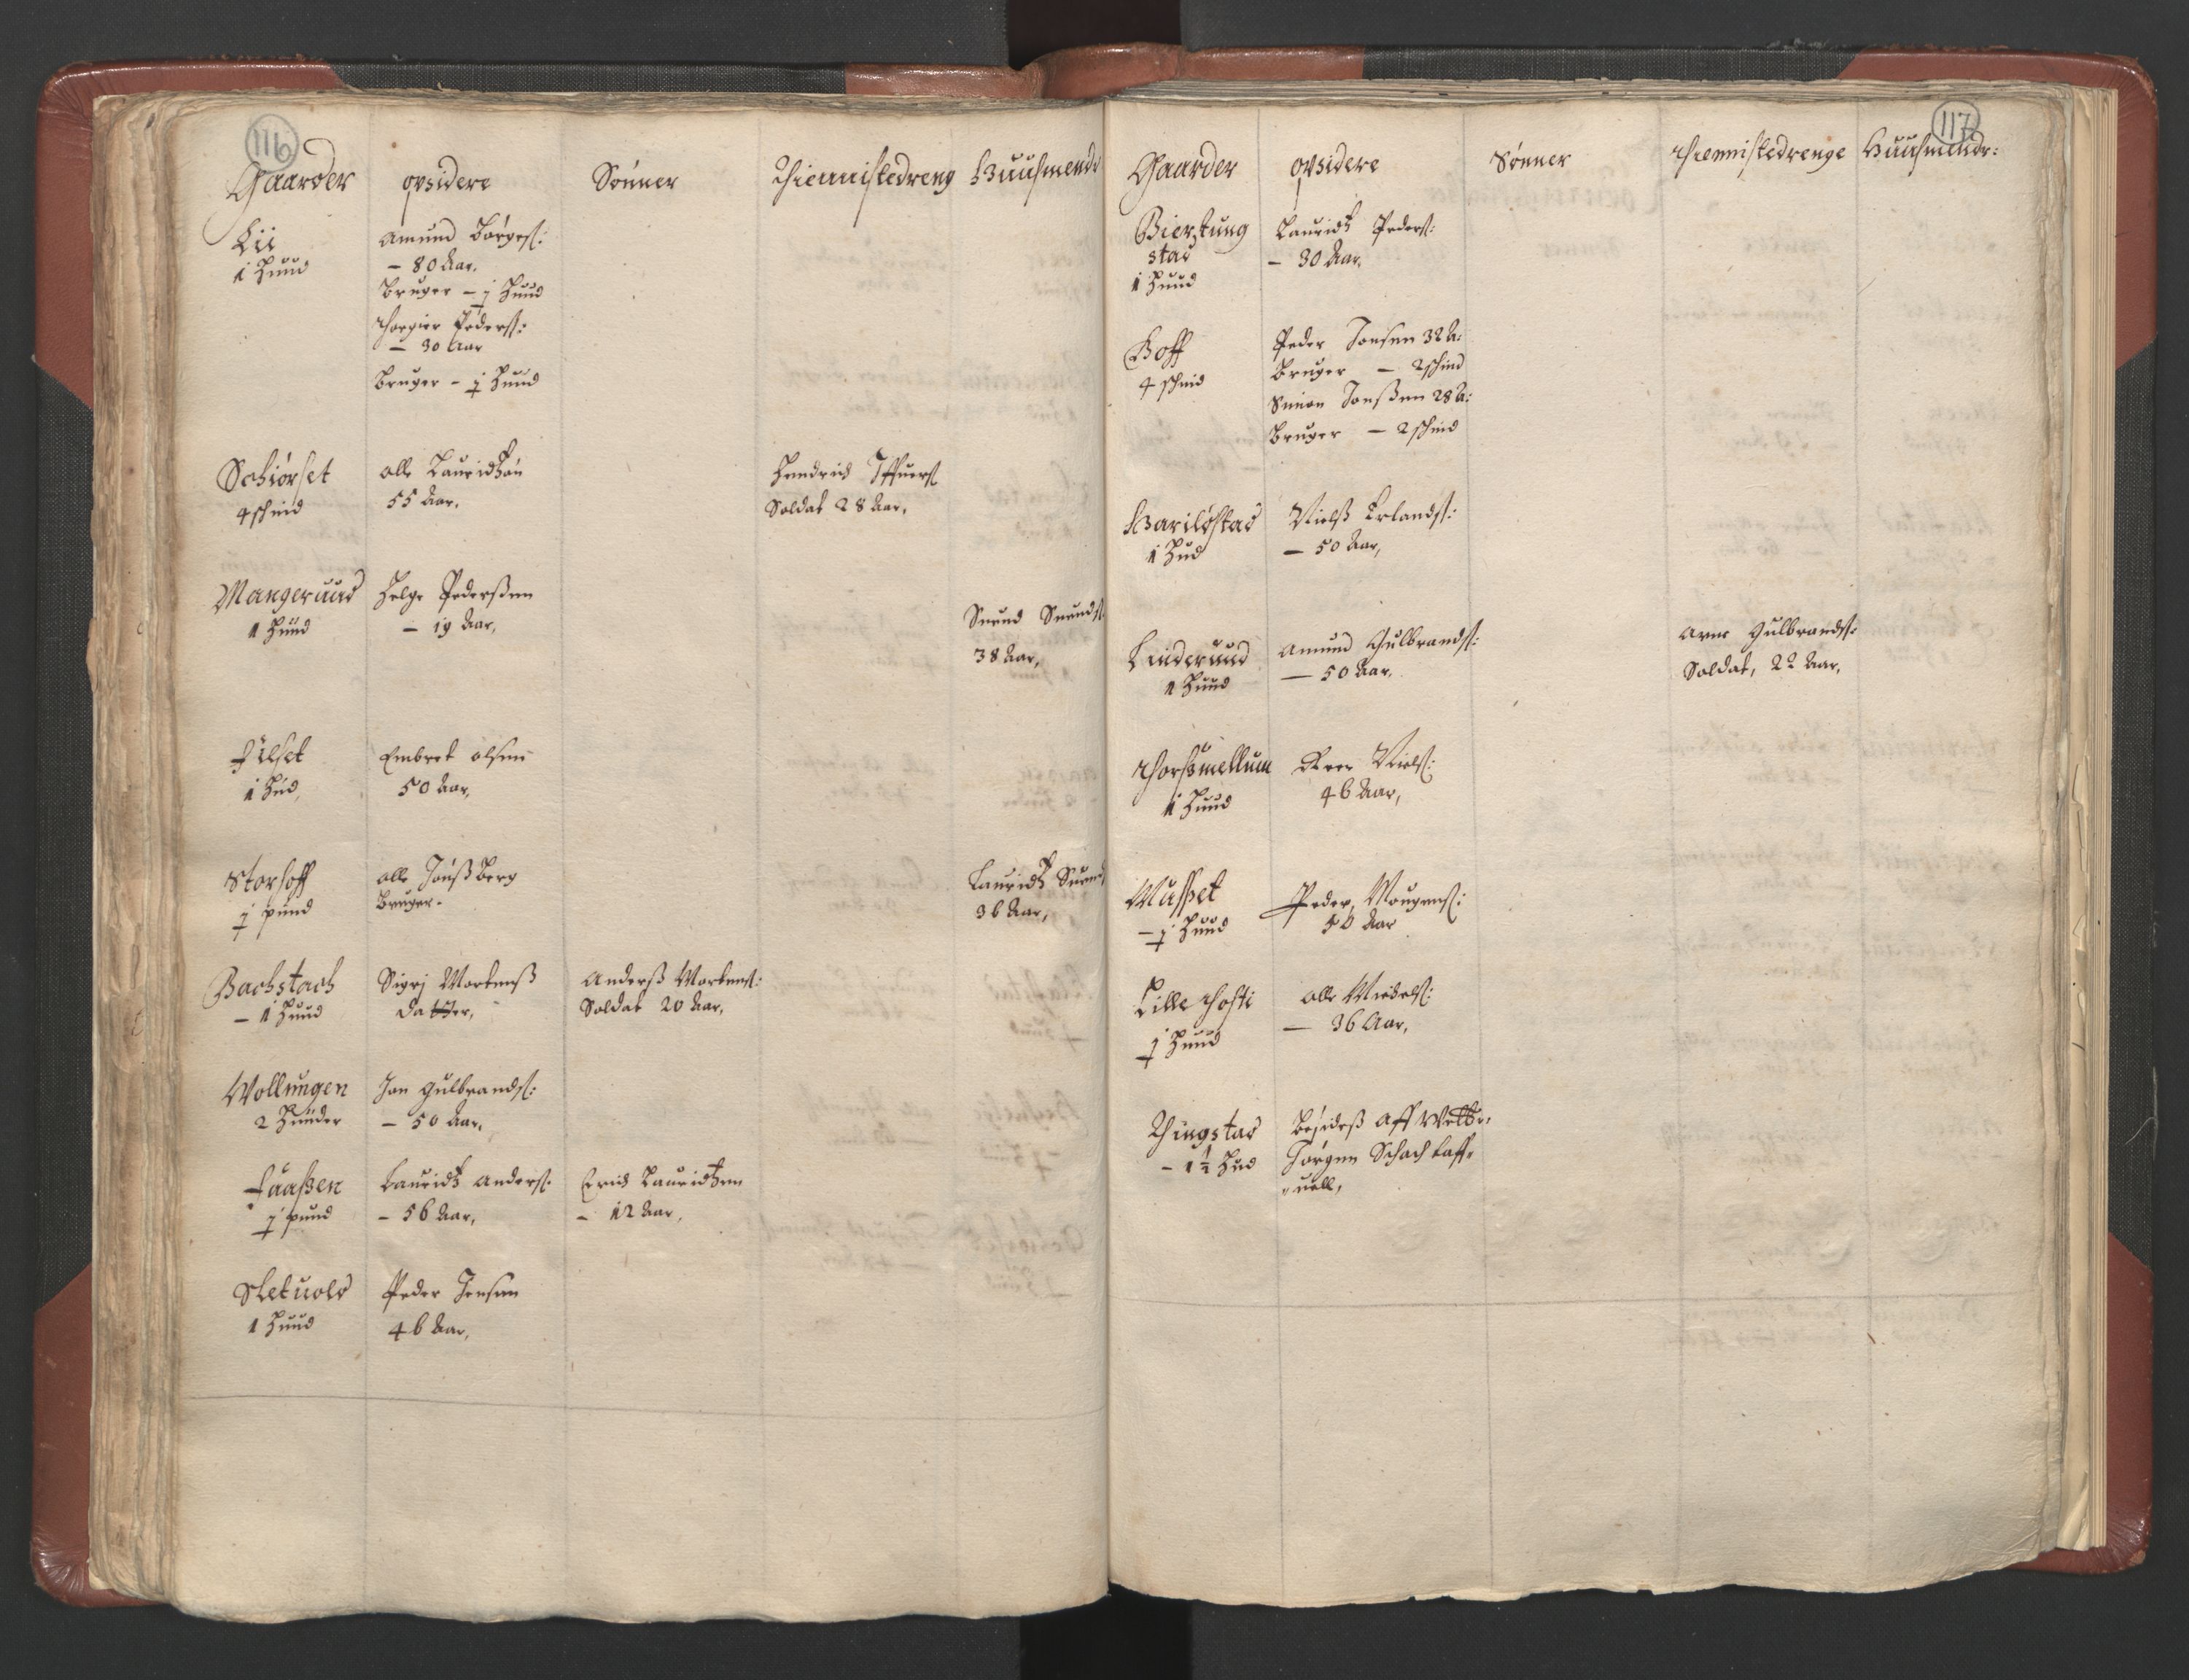 116
Gaarder opsidere Sönner Thiennistedreng Huuhsmendr
Lii
1 Huud
Amund Börges:
– 80 Aar.
Bruger – ½ Huud
Thorgier Peders:
– 30 Aar
Bruger – ½ Huud
Schiörset
4 schind
Olle Lauridtzön
55 Aar.
Hendrich Iffuers
Soldat 28 Aar,
Mangeruud
1 Huud
Helge Pederßen
– 19 Aar,
Suend Suends
38 Aar,
Jülset
1 Hud,
Embret Olsen
50 Aar,
Storhoff
½ pund
Olle Jonßberg
Bruger.
Lauridtz Suends
36 Aar,
Bachstach
– 1 Huud
Sigrj Mortenß
Datter,
Anderß Mortens:
Soldat 20 Aar,
Wollungen
2 Huder
Jon Gulbrands:
– 50 Aar,
Faaßen
½ pund
Lauridtz Anders:
– 56 Aar,
Erich Lauridtzen
– 12 Aar,
Sletuold
1 Huud
Peder Jensen
46 Aar,
117
Gaarder opsidere Sönner Thiennistedrenge Huuhsmendr:
Bierstung
stad
1 Huud
Lauridtz Peders:
– 30 Aar.
Hoff
4 schind
Peder Jonsen 32 A:
Bruger – 2 schind
Simon Jonßen 28 A:
Bruger – 2 schind
Harildstad
1 Hud
Nielß Erlands:
– 50 Aar,
Linderuud
1 Huud
Amund Gulbrands:
– 50 Aar,
Arne Gulbrands:
Soldat, 22 Aar,
Thorshmellum
1 Huud
Niels:
46 Aar,
Mußet
– ½ Huud
Peder Mougens:
50 Aar
Lille Thosti
½ Huud
Olle Michels:
– 36 Aar,
Thingstad
– 1½ Hud
Besideß aff Welb:
Jörgen Schachtaff„
„uell,